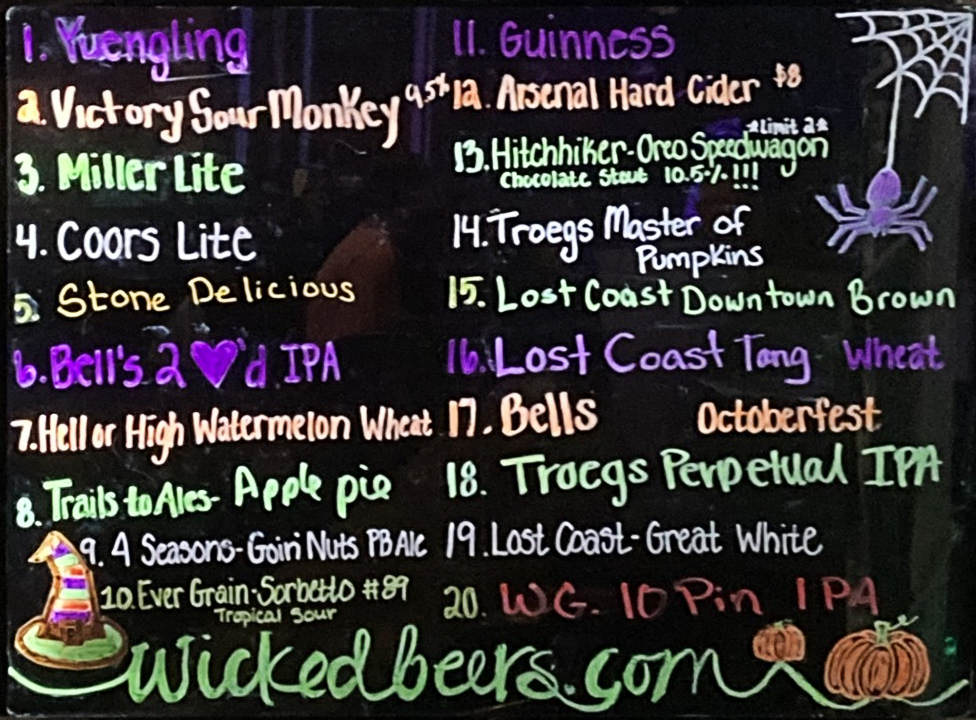 1. Yuengling
2. Victory Sour Monkey 9.5%
3. Miller Lite
4. Coors Lite
5. Stone Delicious
6. Bell's 2 ♥'d IPA
7. Hell or High Watermelon Wheat
8. Trails to Ales- Apple pie
9. 4 Seasons-Goin' Nuts PB Ale
10. Ever Grain-Sorbetto #89
Tropical Sour
11. Guinness
12. Arsenal Hard Cider $8
*Limit 2*
13. Hitchhiker-Oreo Speedwagon
Chocolate Stout 10.5%!!!
14. Troegs Master of
Pumpkins
15. Lost Coast Downtown Brown
16. Lost Coast Tang Wheat
17. Bells Octoberfest
18. Troegs Perpetual IPA
19. Lost Coast-Great White
20. WG. 10 Pin IPA
wickedbeers.com